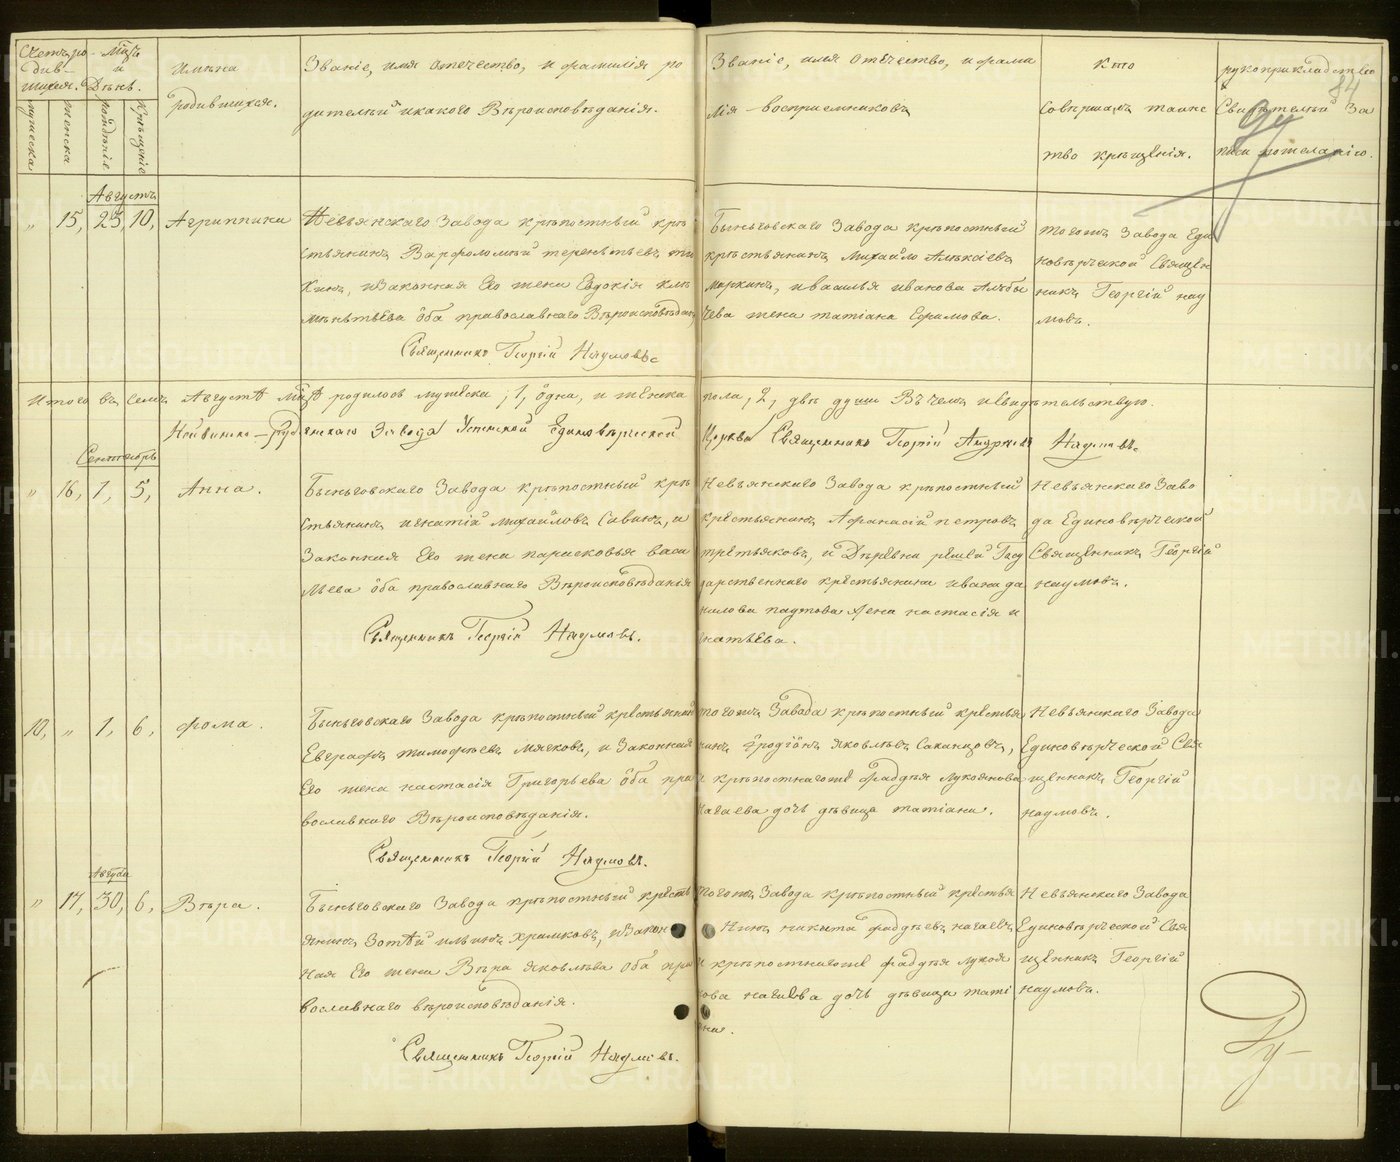 Счетъ ро
див
шихся.
Мѣсяцъ
и
День.
мужеска
женска
рожденіе
крещеніе
Имена
родившихся.
Званіе, имя отечество, и фамилія ро
дителей и какого Вѣроисповѣданія.
Званіе, имя отечество, и фами
лія воспріемниковъ
кто
совершалъ таинс
тво крещенія.
рукоприкладство
Свидѣтелей За
писи по желанію.
84
Августъ
" 15, 23, 10, Агриппина
Невьянскаго Завода крѣпостный кре
стьянинъ Варфоломей терентьевъ
и Законная Его жена Евдокія кле
ментьева оба православнаго Вѣроисповѣданія
Священникъ Георгій Наумовъ
Быньговскаго Завода крѣпостный
крестьянинъ Михайло Алекѣевъ
Маркинъ, и василья иванова
жена татіана Ефимова.
тогожъ Завода Еди
новѣрческой Священ
никъ Георгій нау
мовъ.
Итого въ семъ Августѣ мцѣ родилось мужеска, 1, одна, и женска
пола, 2, двѣ души Въ чемъ и свидѣтельствую.
Нейвинско-Рудянскаго Завода Успенской Единовѣрческой
Церкви Священникъ Георгій Андреевъ Наумовъ.
Сентябрь
" 16, 1, 5, Анна.
Быньговскаго Завода крѣпостный кре
стьянинъ игнатій михайловъ Савинъ, и
Законная Его жена парасковья васи
льева оба православнаго Вѣроисповѣданія
Священникъ Георгій Наумовъ.
Невьянскаго Завода крѣпостный
крестьянинъ Афанасій петровъ
третьяковъ, и Деревни решей Госу
дарственнаго крестьянина ивана да
нилова паутова жена настасія и
гнатьева.
Невьянскаго Заво
да Единовѣрческой
Священникъ Георгій
наумовъ.
10, " 1, 6, фома.
Быньговскаго Завода крѣпостный крестьянинъ
Евграфъ тимофѣевъ Мягковъ, и Законная
Его жена настасія Григорьева оба пра
вославнаго Вѣроисповѣданія.
Священникъ Георгій Наумовъ.
тогожъ Завода крѣпостный крестья
нинъ родіонъ яковлевъ Саканцовъ,
и крѣпостнагоже фаддѣя Лукоянова
нагаева дочь дѣвица татіана.
Невьянскаго Завода
Единовѣрческой Свя
щенникъ Георгій
наумовъ.
Августа
" 17, 30, 6, Вѣра.
Быньговскаго Завода крѣпостный кресть
янинъ Зотѣй ильинъ Храмковъ, и Закон
ная Его жена Вѣра яковлева оба пра
вославнаго вѣроисповѣданія.
Священникъ Георгій Наумовъ.
тогожъ Завода крѣпостный крестья
нинъ никита фаддѣевъ нагаевъ
и крѣпостнагоже фаддѣя лукоя
нова нагаева дочь дѣвица таті
ана.
Невьянскаго Завода
Единовѣрческой Свя
щенникъ Георгій
наумовъ.
METRIKI.GASO-URAL.RU